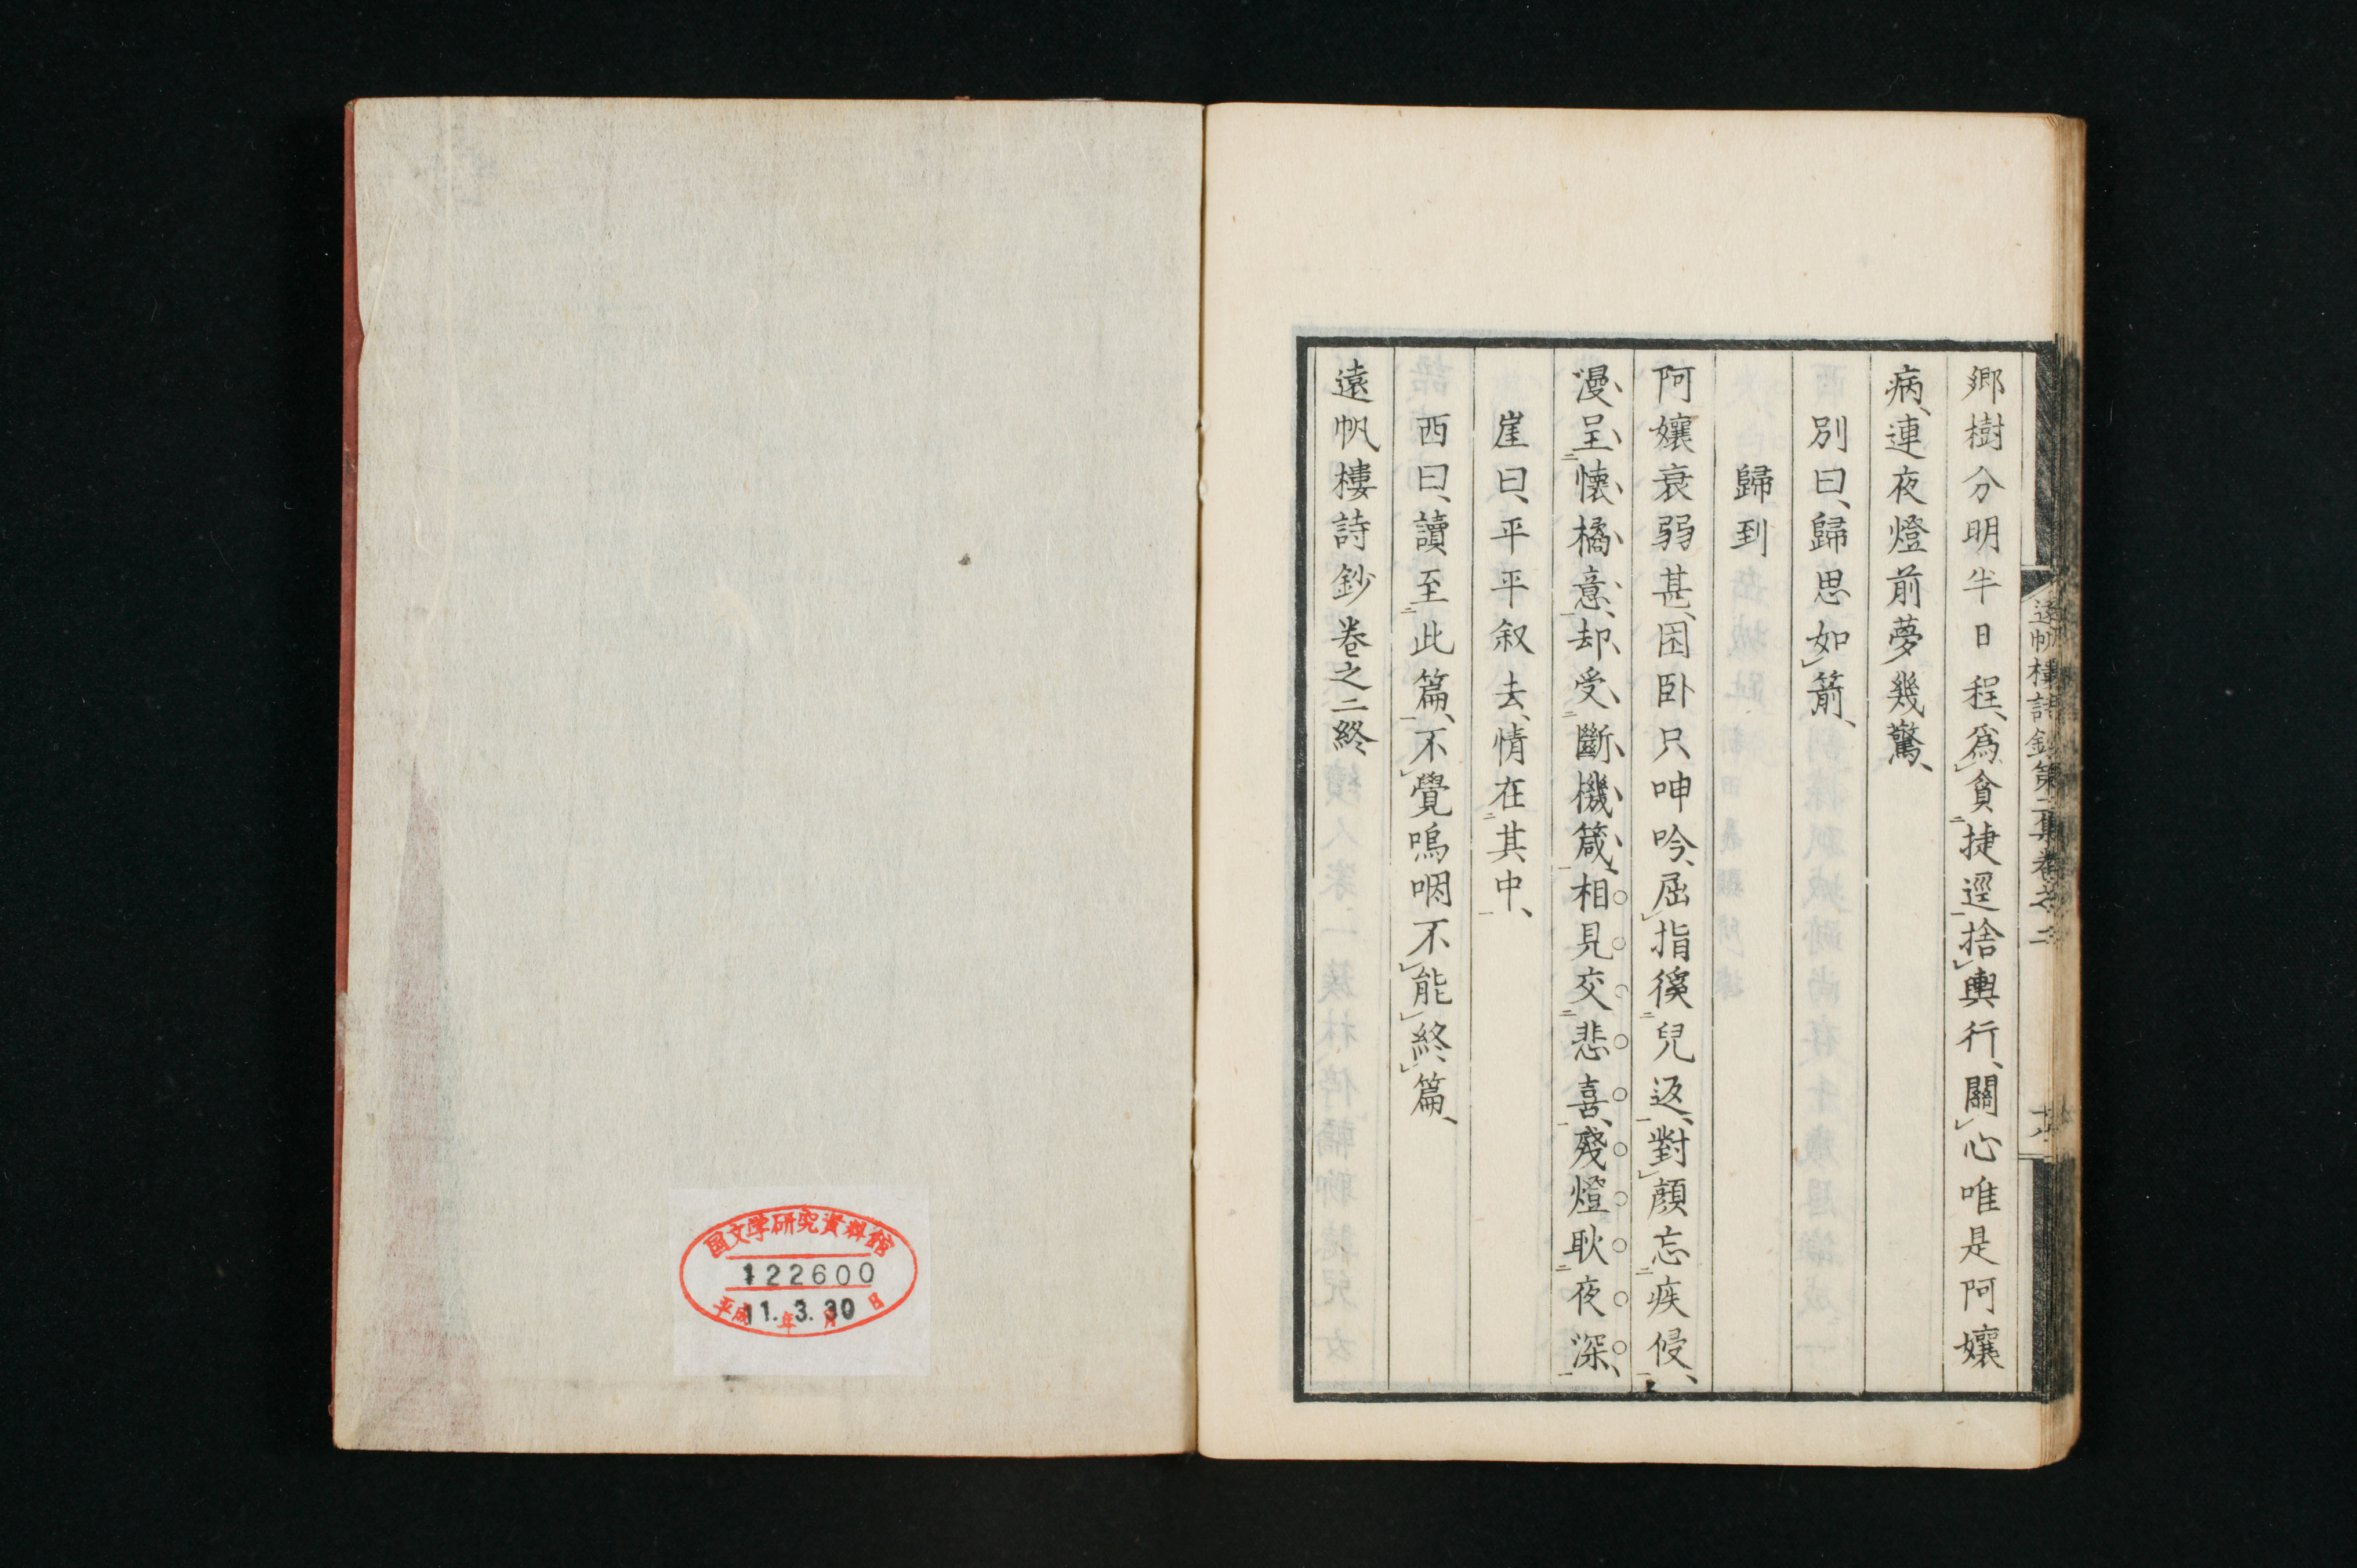 郷樹分明半日程、爲貪捷逕捨輿行、關心唯是阿孃
病、連夜燈前夢幾驚、
別曰、歸思如箭、
歸到
阿孃衰弱甚、困卧只呻吟、屈指徯兒返、對顔忘疾侵、
漫呈懷橘意、却受斷機箴、相見交悲喜、殘燈耿夜深、
崖曰、平平叙去、情在其中、
西曰、讀至此篇、不覺嗚咽不能終篇、
遠帆樓詩鈔卷之二終
遠帆樓詩鈔第二集卷之二
国文学研究資料館
122600
平成11年3月30日